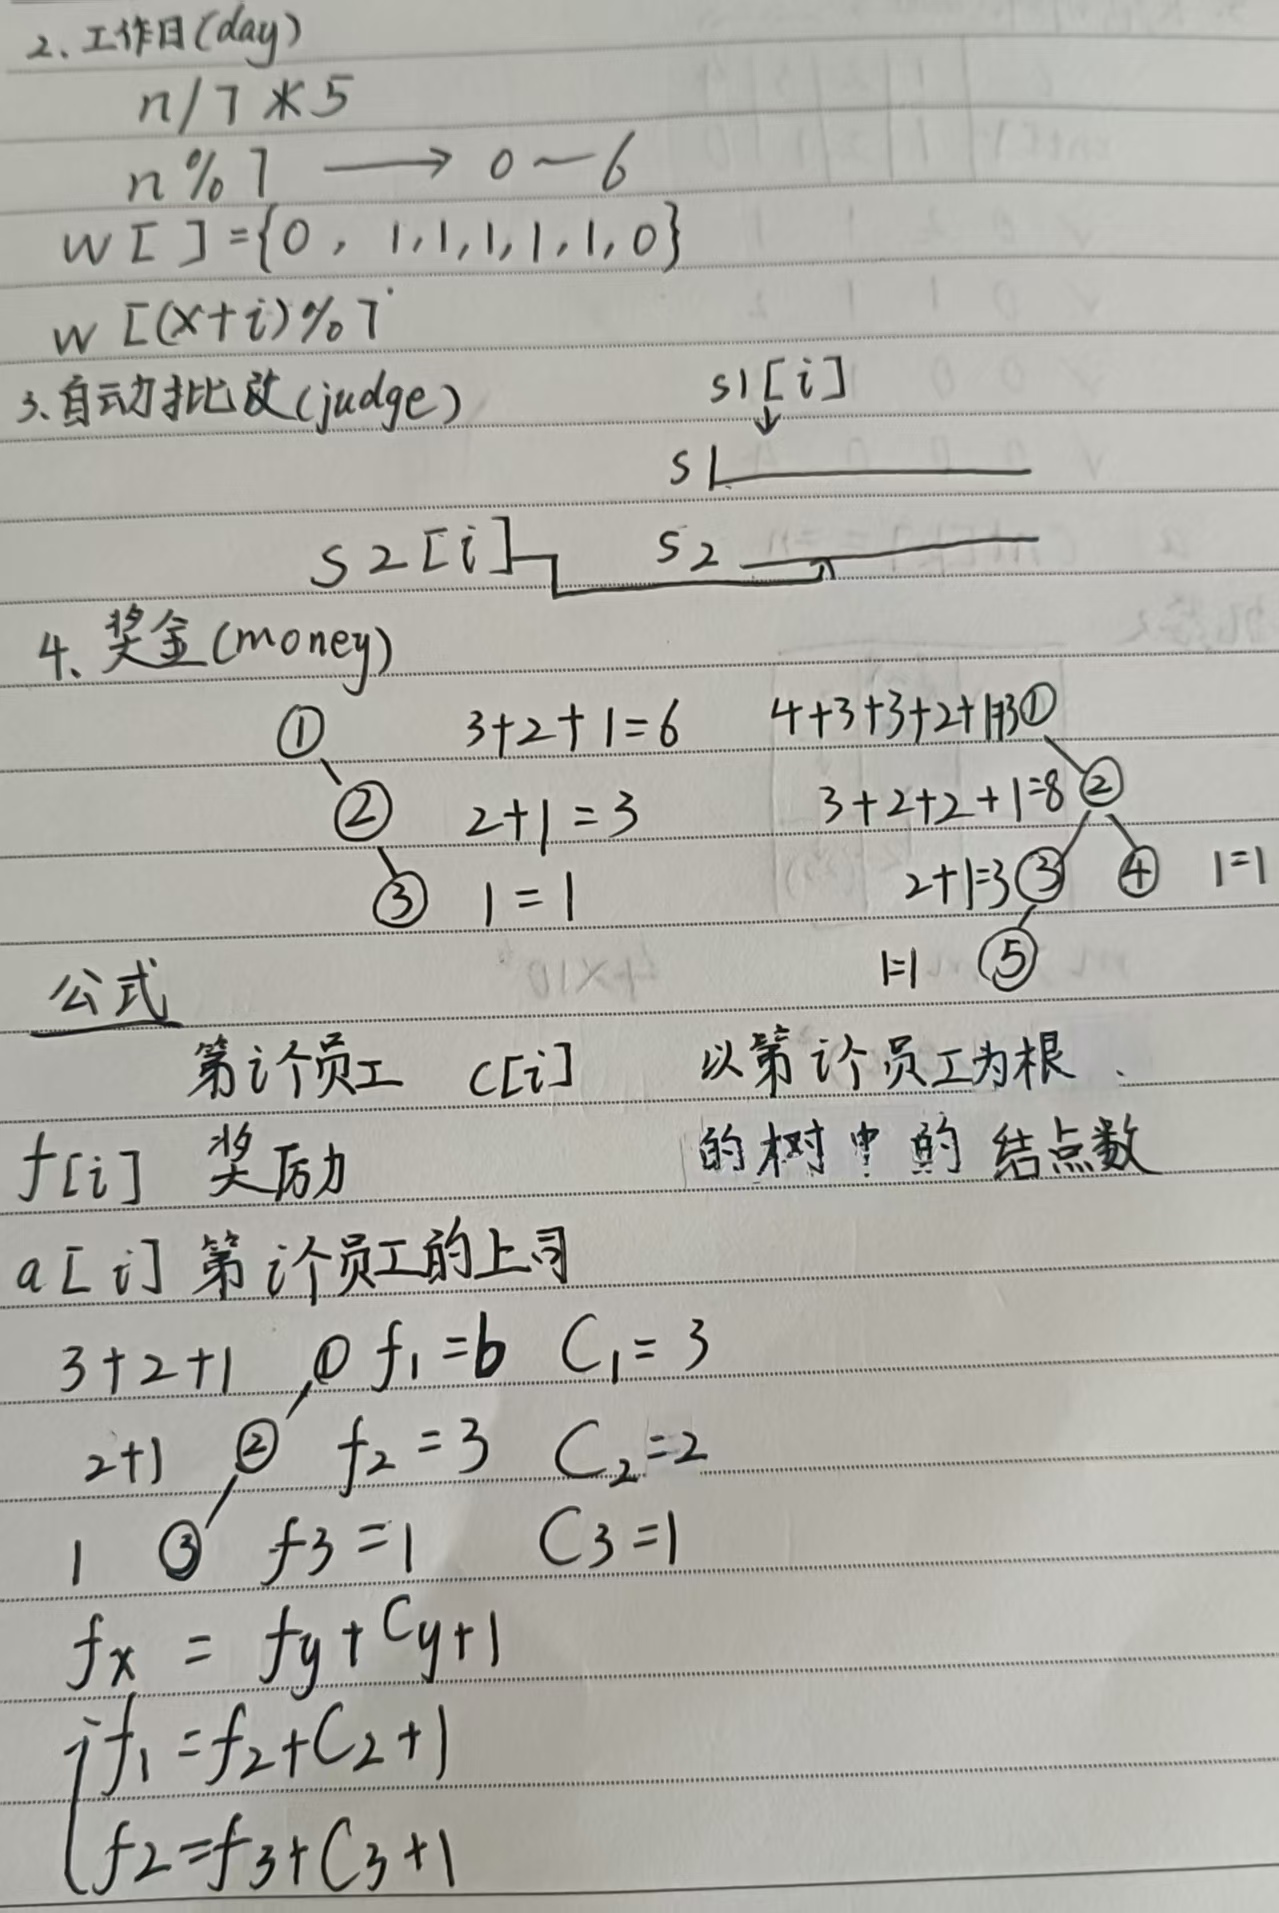 2、工作日(day)
n/7*5
n%7 → 0~6
w[ ]={0, 1,1,1,1,1,0}
w[(x+i)%7
3.自动批改(judge)
s1[i]
s1
s2[i] s2
4、奖金(money)
① 3+2+1=6 4+3+3+2+1=13①
② 2+1=3 3+2+2+1=8②
③ 1=1 2+1=3③ ④ 1=1
1=1 ⑤
公式
第i个员工 c[i] 以第i个员工为根
f[i] 奖励力 的树中的结点数
a[i] 第i个员工的上司
3+2+1 ① f1=6 C1=3
2+1 ② f2=3 C2=2
1 ③ f3=1 C3=1
fx = fy+Cy+1
f1=f2+C2+1
f2=f3+C3+1